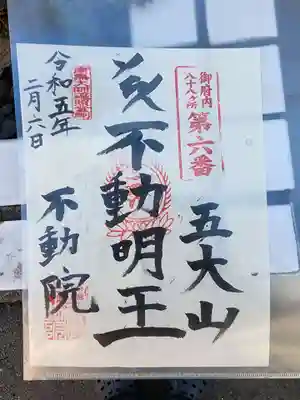 御府内
八十八ヶ所
第六番
五大山
不動明王
不動院
令和五年
二月六日